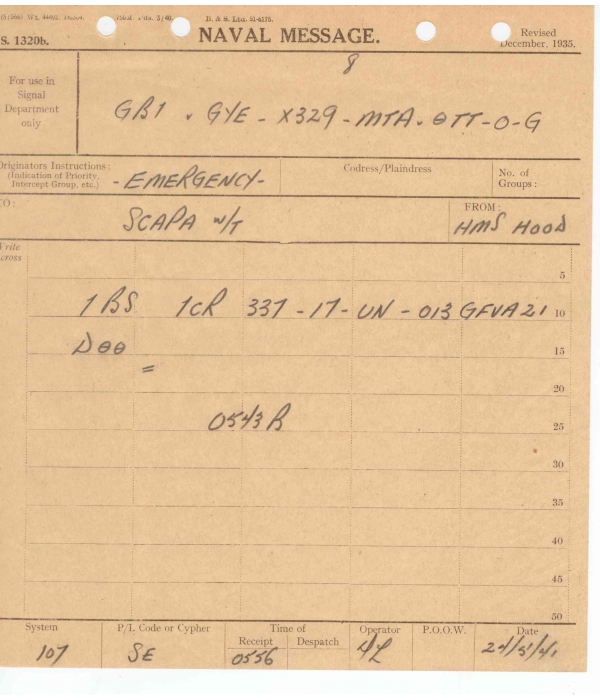 D. & S. Ltd. 51-4175.
S. 1320b.
NAVAL MESSAGE.
Revised
December, 1935.
8
For use in
Signal
Department
only
GB1 . GYE - X329 - MTA . ΘTT - O - G
Originators Instructions:
(Indication of Priority,
Intercept Group, etc.)
- EMERGENCY -
Codress/Plaindress
No. of
Groups:
TO:
SCAPA W/T
FROM:
HMS HOOD
Write
across
5
1BS 1CR 337 - 17 - UN - 013 GFVA21
10
DΘΘ
15
=
20
0543 B
25
30
35
40
45
50
System
P/L Code or Cypher
Time of
Receipt
Despatch
Operator
P.O.O.W.
Date
107
SE
0556
24/5/41